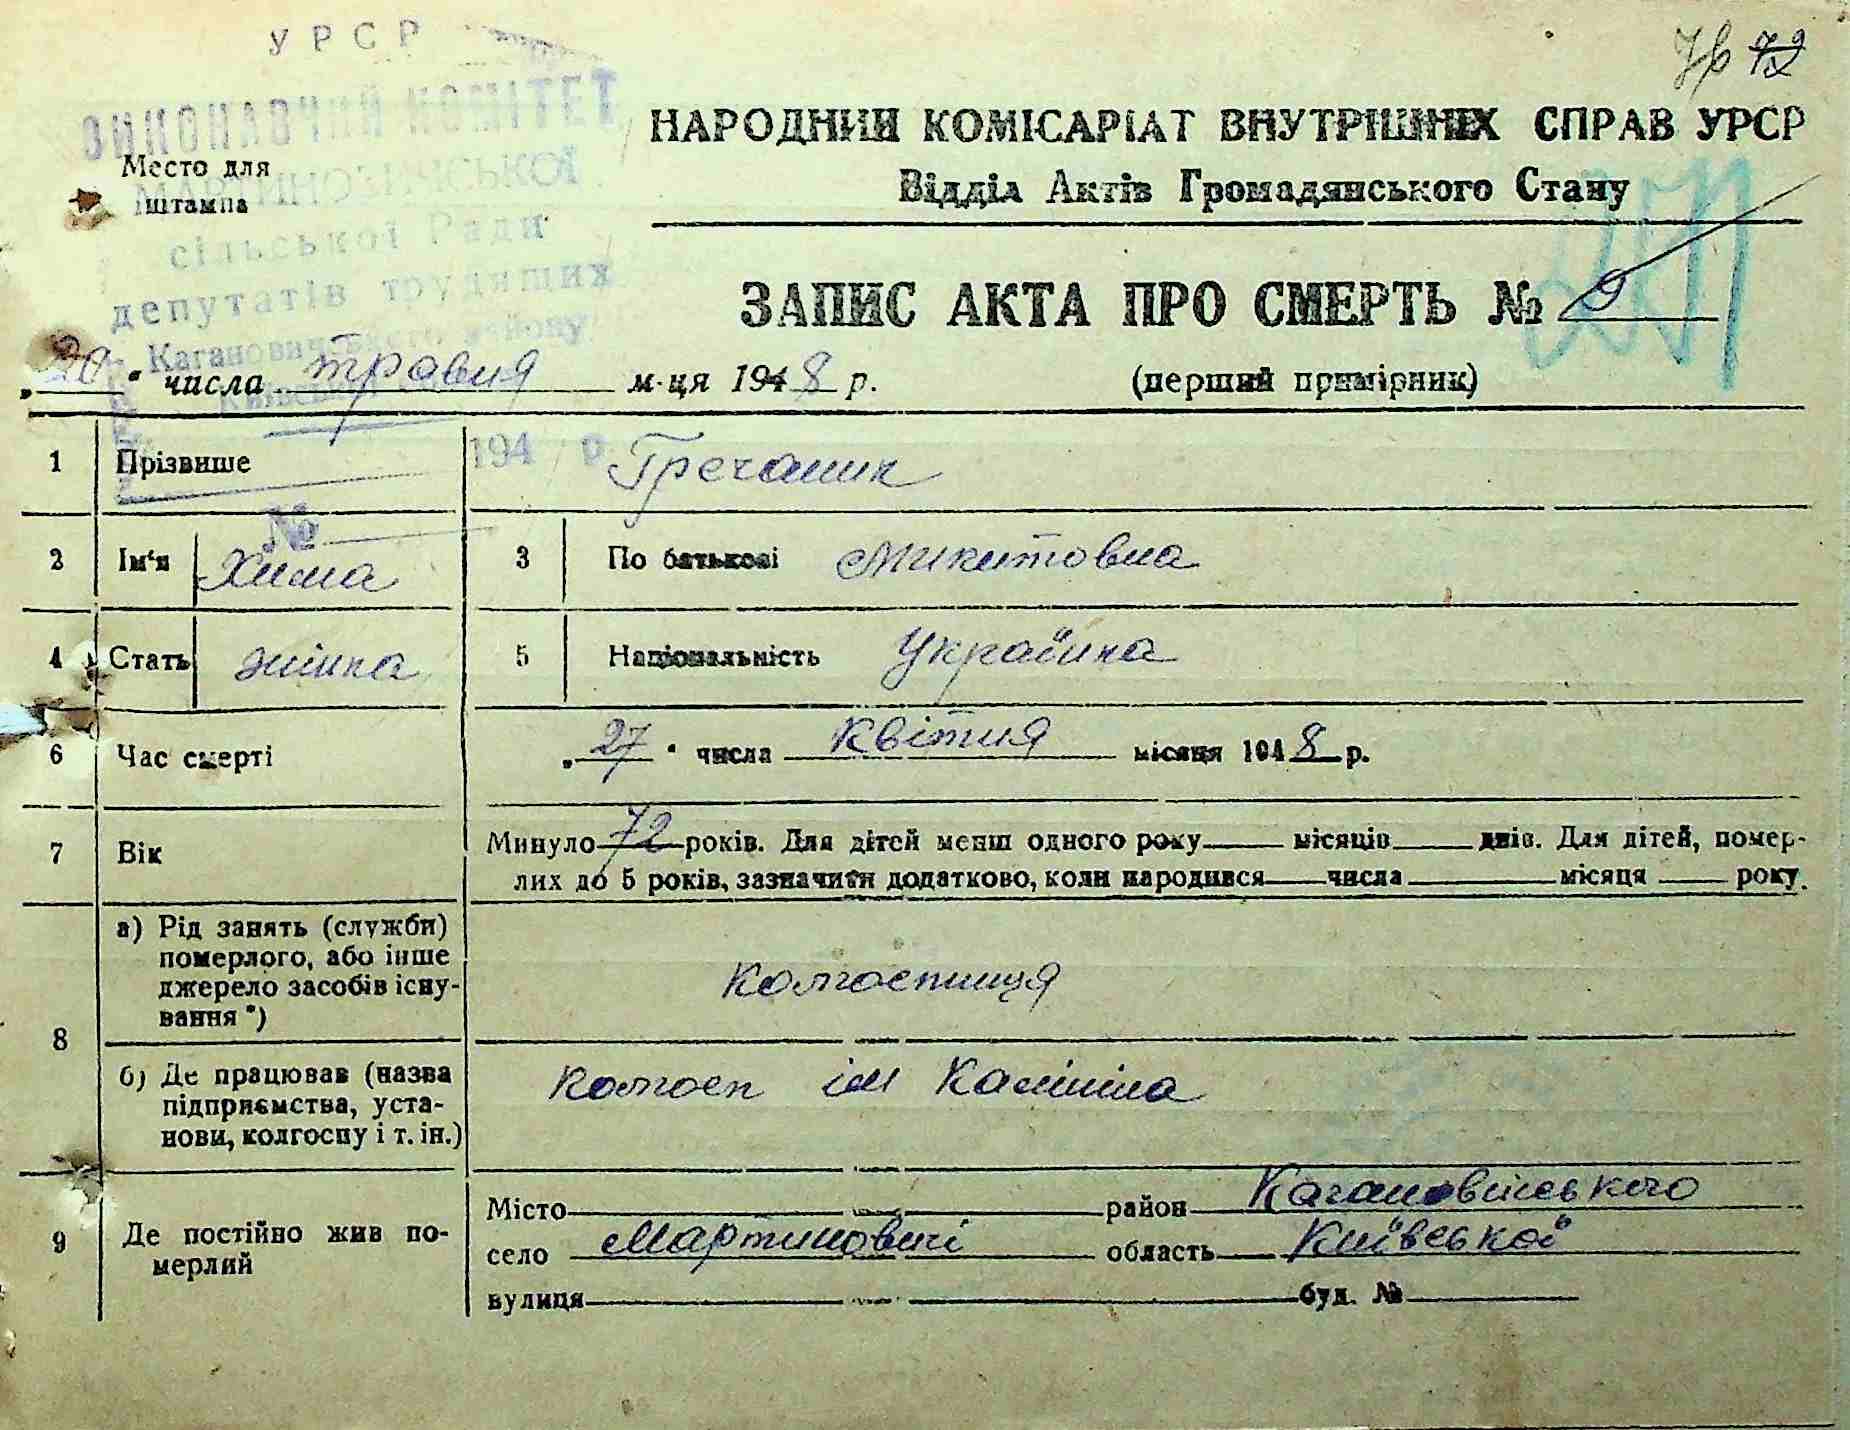 УРСР
ВИКОНАВЧИЙ КОМІТЕТ
76 72
НАРОДНИЙ КОМІСАРІАТ ВНУТРІШНІХ СПРАВ УРСР
Место для
штампа
Відділ Актів Громадянського Стану
сільської Ради
депутатів трудящих
ЗАПИС АКТА ПРО СМЕРТЬ № 9
„20“ числа травня м-ця 1948 р. (перший примірник)
1 Прізвише Гречаник
194 р.
№
2 Ім'я Хима 3 По батькові Микитовна
4 Стать жінка 5 Національність Українка
6 Час смерті „27“ числа квітня місяця 1948 р.
7 Вік Минуло 72 років. Для дітей менш одного року місяців днів. Для дітей, помер-
лих до 5 років, зазначити додатково, коли народився числа місяця року.
8 а) Рід занять (служби) померлого, або інше джерело засобів існу-вання *) Колгоспниця
б) Де працював (назва підприємства, уста-нови, колгоспу і т. ін.) колгосп ім Калініна
9 Де постійно жив по-мерлий Місто район Кагановицького
село Мартиновичі область Київської
вулиця буд. №